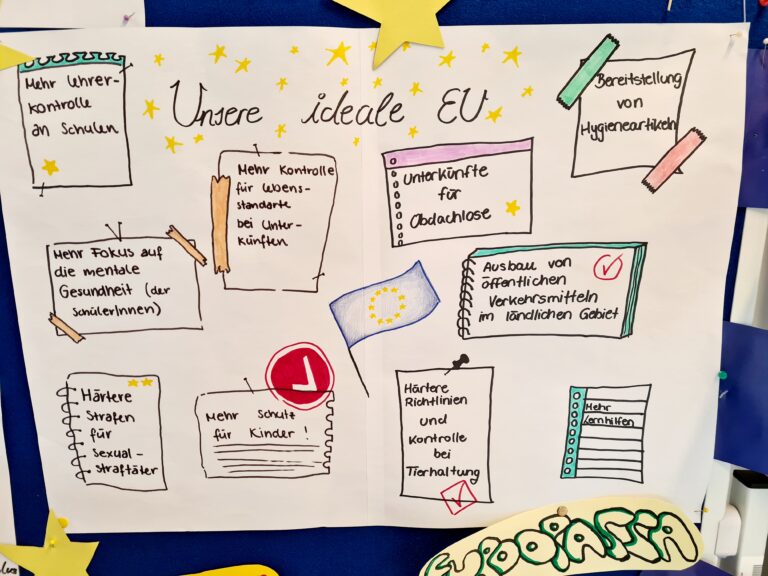 Unsere ideale EU
Mehr Lehrer-
kontrolle
an Schulen
Mehr Kontrolle
für Lebens-
standarte
bei Unter-
künften
Unterkünfte
für
Obdachlose
Bereitstellung
von
Hygieneartikeln
Mehr Fokus auf
die mentale
Gesundheit (der
SchülerInnen)
Ausbau von
öffentlichen
Verkehrsmitteln
im ländlichen Gebiet
Härtere
Strafen
für
Sexual-
straftäter
Mehr Schutz
für Kinder!
Härtere
Richtlinien
und
Kontrolle
bei
Tierhaltung
Mehr
Lernhilfen